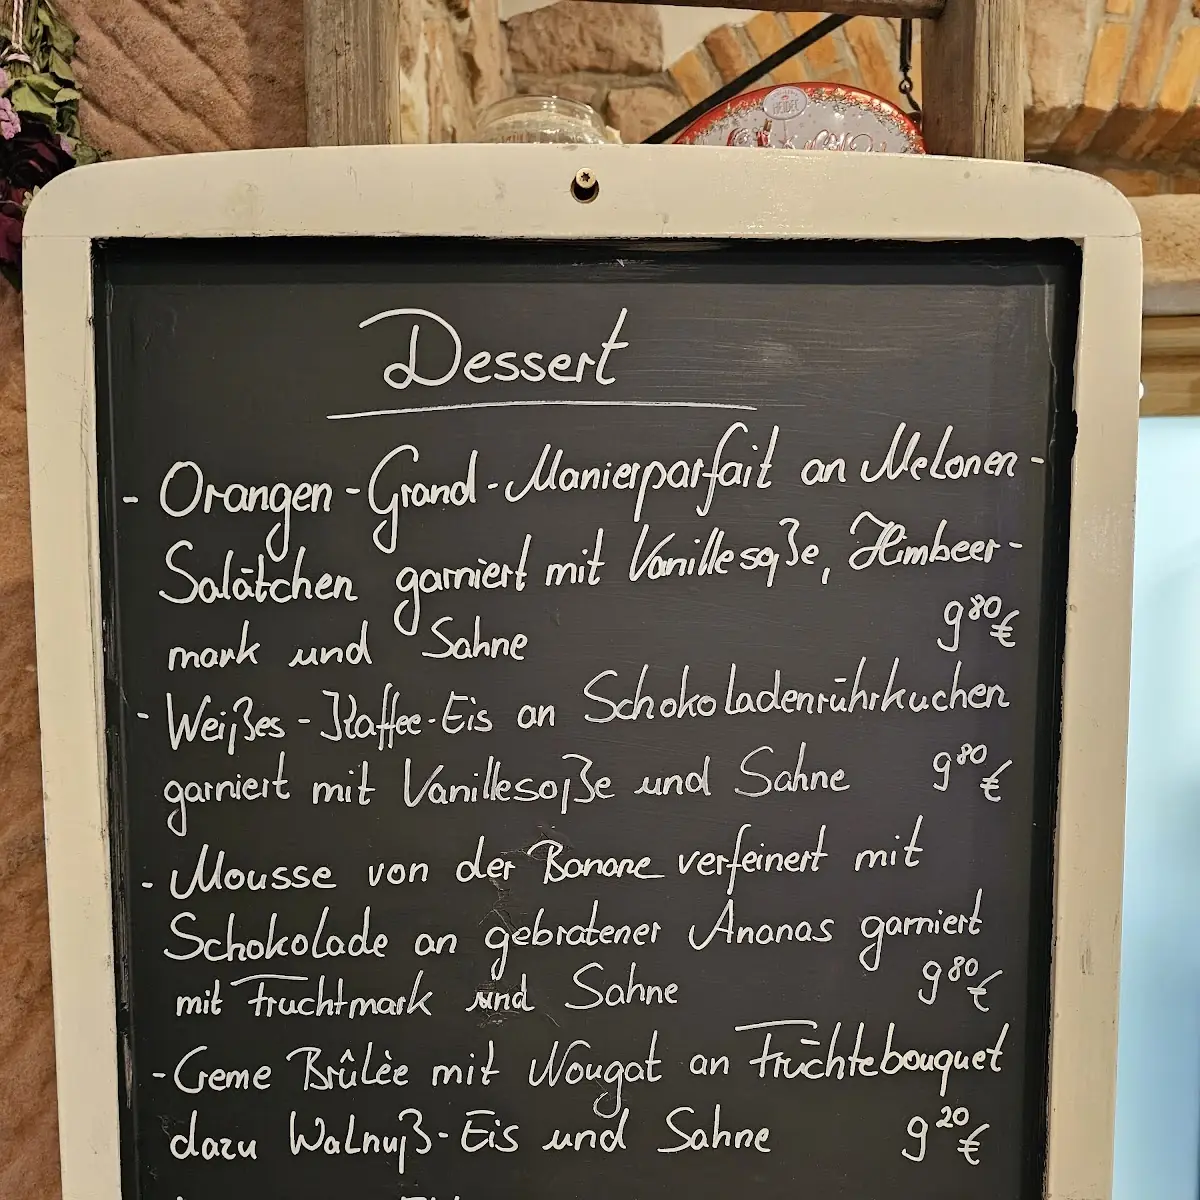 HEIDEL
Dessert
- Orangen-Grand-Manierparfait an Melonen-
Salätchen garniert mit Vanillesoße, Himbeer-
mark und Sahne 9⁸⁰€
- Weißes-Kaffee-Eis an Schokoladenrührkuchen
garniert mit Vanillesoße und Sahne 9⁸⁰€
- Mousse von der Banane verfeinert mit
Schokolade an gebratener Ananas garniert
mit Fruchtmark und Sahne 9⁸⁰€
- Creme Brûlèe mit Nougat an Früchtebouquet
dazu Walnuß-Eis und Sahne 9²⁰€